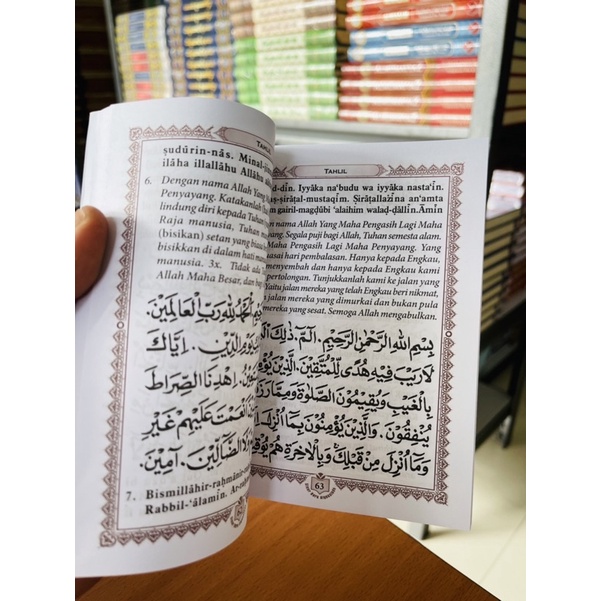 TAHLIL
ṣudūrin-nās. Minal-
ilāha illallāhu Allāhu
6. Dengan nama Allah Yang
Penyayang. Katakanlah
lindung diri kepada Tuhan
Raja manusia, Tuhan
(bisikan) setan yang
bisikkan di dalam hati
manusia. 3x. Tidak ada
Allah Maha Besar, dan
الْحَمْدُ لِلّٰهِ رَبِّ الْعَالَمِيْنَ.
يَوْمِ الدِّيْنِ. اِيَّاكَ
اِهْدِنَا الصِّرَاطَ
اَنْعَمْتَ عَلَيْهِمْ غَيْرِ
الضَّالِّيْنَ. آمِيْنَ.
7. Bismillāhir-raḥmānir-
Rabbil-‘ālamīn.
TAHLIL
d-dīn. Iyyāka na‘budu wa iyyāka nasta‘īn.
ṣ-ṣirāṭal-mustaqīm. Ṣirāṭallażīna an‘amta
gairil-magḍūbi ‘alaihim walaḍ-ḍāllīn. Āmīn
nama Allah Yang Maha Pengasih Lagi Maha
Segala puji bagi Allah, Tuhan semesta alam.
Maha Pengasih Lagi Maha Penyayang. Yang
hari pembalasan. Hanya kepada Engkau
menyembah dan hanya kepada Engkau kami
pertolongan. Tunjukkanlah kami ke jalan yang
Yaitu jalan mereka yang telah Engkau beri nikmat,
jalan mereka yang dimurkai dan bukan pula
mereka yang sesat. Semoga Allah mengabulkan.
بِسْمِ اللهِ الرَّحْمٰنِ الرَّحِيْمِ. الٓمّٓ. ذٰلِكَ
لَا رَيْبَ فِيْهِ هُدًى لِّلْمُتَّقِيْنَ. الَّذِيْنَ
بِالْغَيْبِ وَيُقِيْمُوْنَ الصَّلٰوةَ وَمِمَّا
يُنْفِقُوْنَ. وَالَّذِيْنَ يُؤْمِنُوْنَ بِمَا اُنْزِلَ
وَمَا اُنْزِلَ مِنْ قَبْلِكَ وَبِالْاٰخِرَةِ هُمْ
63